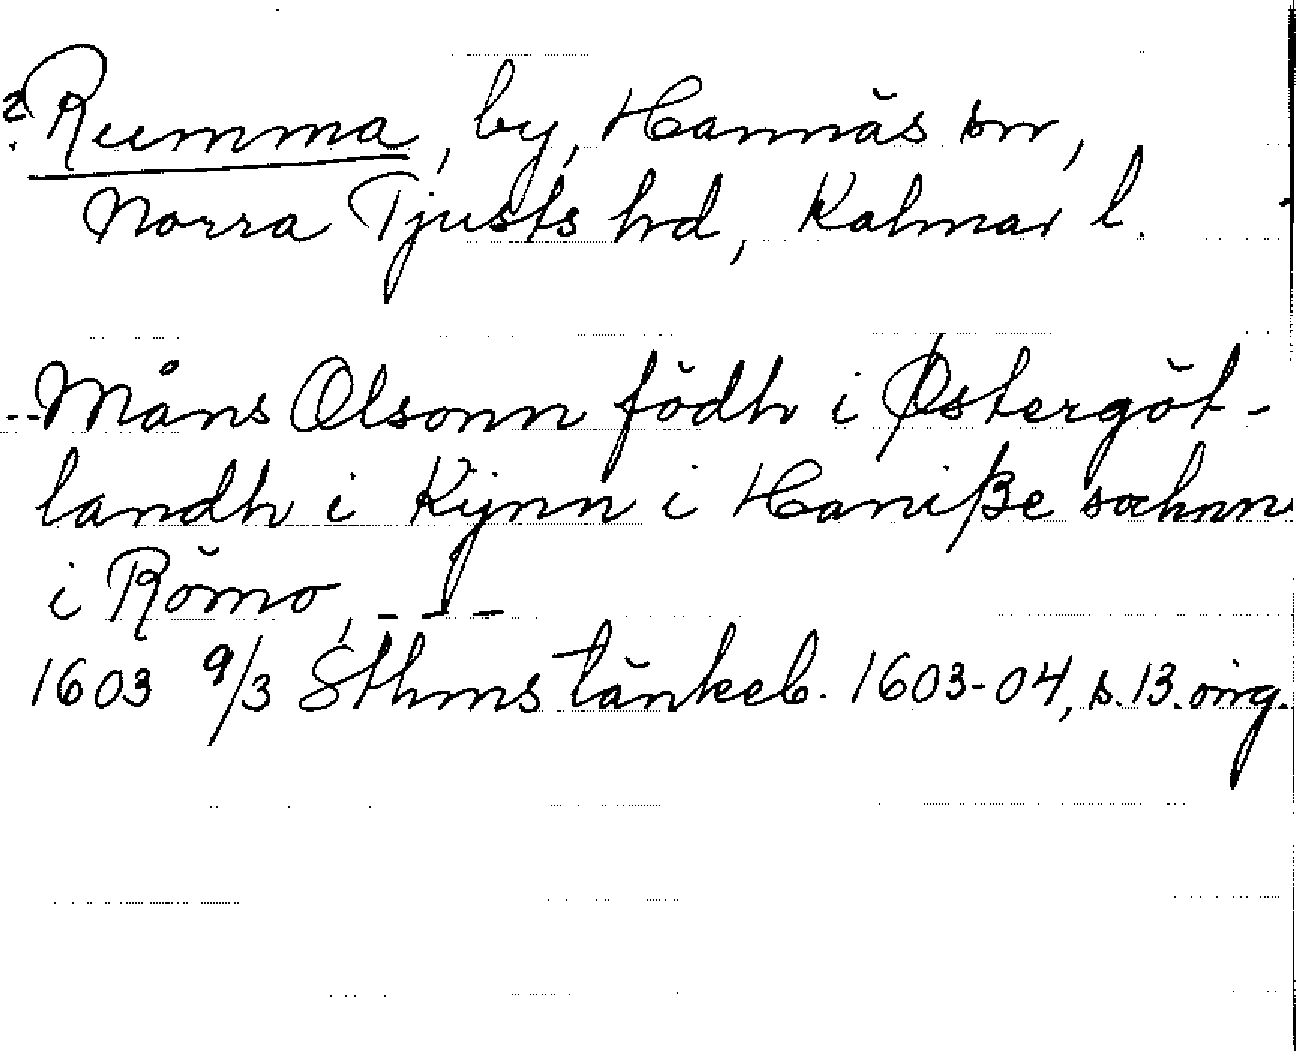 ? Rumma, by, Hannäs sn,
Norra Tjusts hd, Kalmar l.
--Måns Olsonn födh i Østergöt-
landh i Kijnn i Haniße sochnn
i Römo, - - -
1603 9/3 Sthms tänkeb. 1603-04, s. 13. oirg.